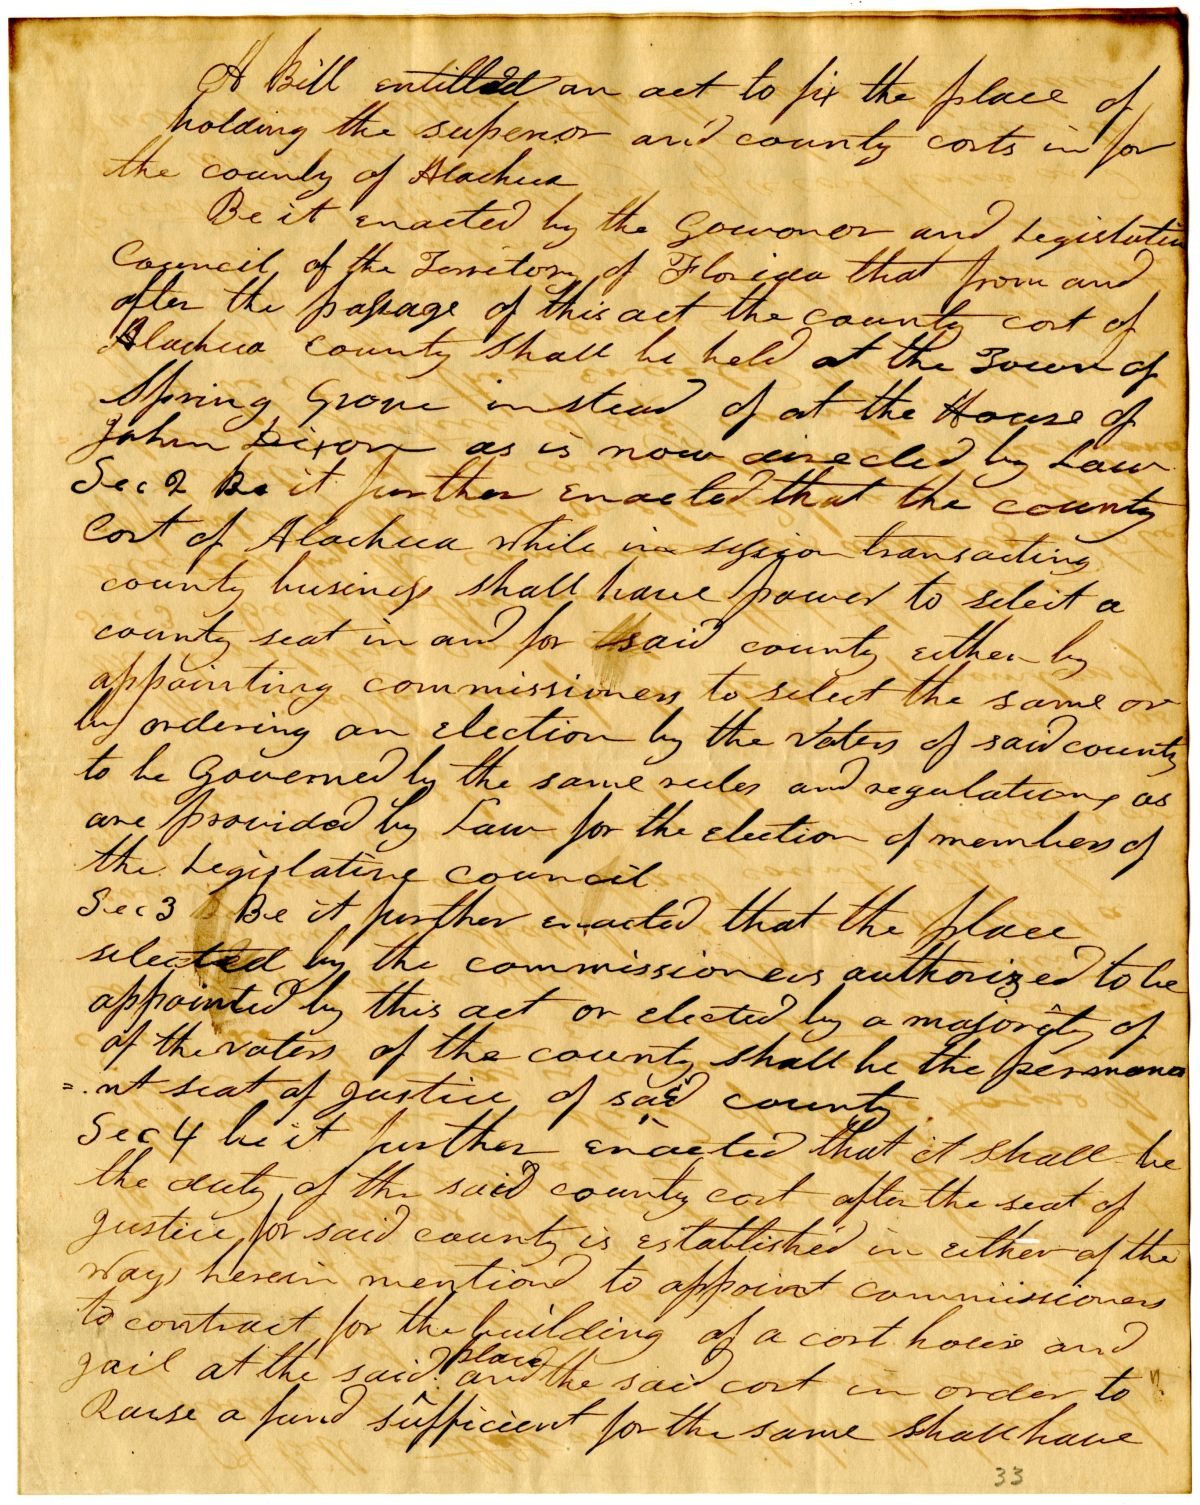 A Bill entitled an act to fix the place of
holding the superior and county corts in for
the county of Alachua
Be it enacted by the Gowonor and Legislative
Council of the Territory of Florida that from and
after the passage of this act the county cort of
Alachua county shall be held at the Town of
Spring Grove instead of at the House of
John Dixon as is now directed by Law
Sec 2 Be it further enacted that the county
Cort of Alachua while in session transacting
county business shall have power to select a
county seat in and for said county either by
appointing commissioners to select the same or
by ordering an election by the voters of said county
to be Governed by the same rules and regulations as
are provided by Law for the election of members of
the Legislative council
Sec 3 Be it further enacted that the place
selected by the commissioners authorized to be
appointed by this act or elected by a majority of
of the voters of the county shall be the permana
=.nt seat of justice of said county
Sec 4 be it further enacted that it shall be
the duty of the said county cort after the seat of
justice for said county is established in either of the
ways herein mentiond to appoint commissioners
to contract for the building of a cort house and
jail at the said place and the said cort in order to
Rause a fund sufficient for the same shall have
33